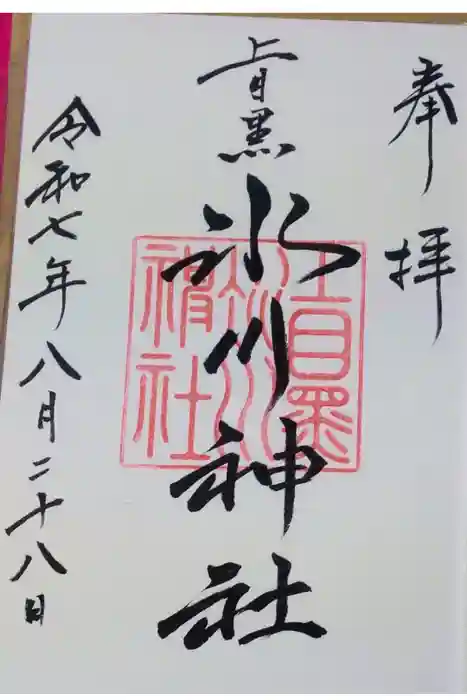 奉拝
上目黒
氷川神社
上目黒
氷川
神社
令和七年八月二十八日